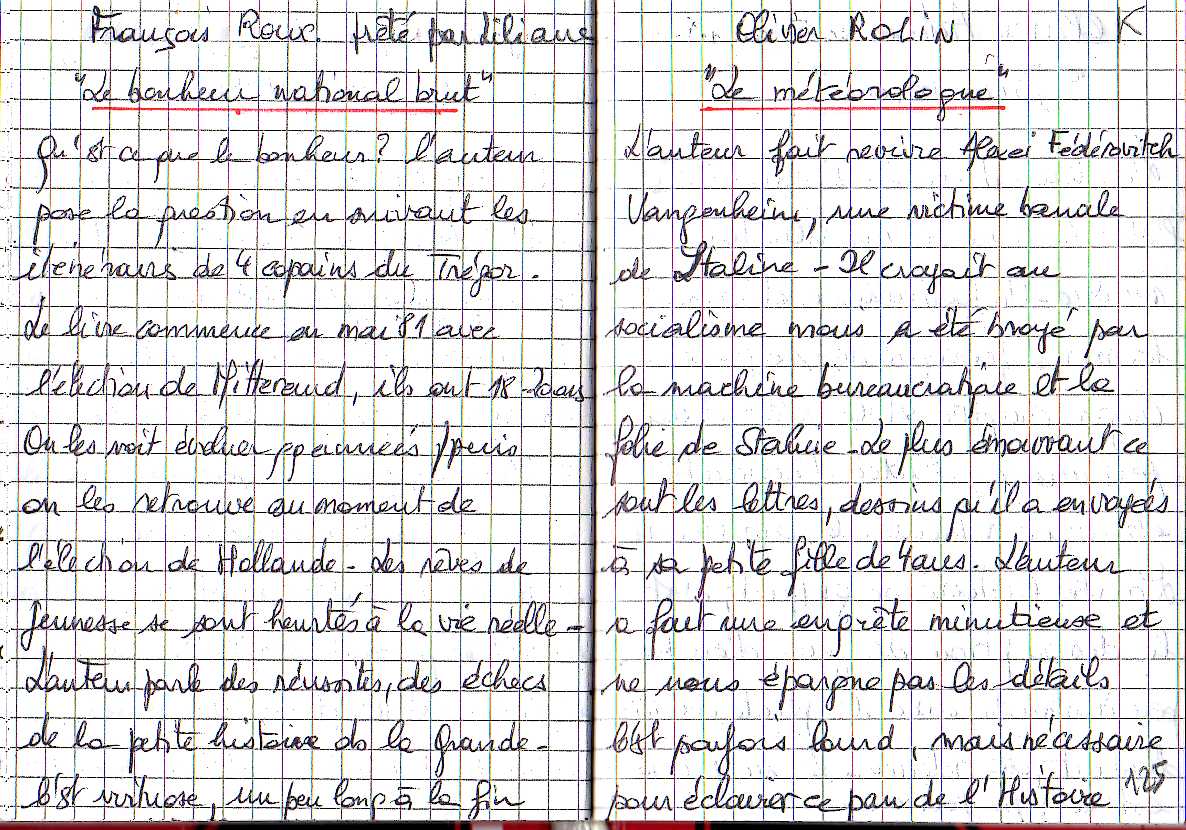 François Roux. prêté par Liliane
"Le bonheur national brut"
Qu'est ce que le bonheur? L'auteur
pose la question en suivant les
itinéraires de 4 copains du Trégor.
Le livre commence en mai 81 avec
l'élection de Mitterand, ils ont 18-20 ans
On les voit évoluer qq années / puis
on les retrouve au moment de
l'élection de Hollande - Les rêves de
jeunesse se sont heurtés à la vie réelle -
L'auteur parle des réussites, des échecs
de la petite histoire ds la grande -
C'est virtuose, un peu long à la fin
Olivier ROLIN K
"Le météorologue"
L'auteur fait revivre Alexei Fédérovitch
Vangenheim, une victime banale
de Staline - Il croyait au
socialisme mais a été broyé par
la machine bureaucratique et la
folie de Staline - Le plus émouvant ce
sont les lettres, dessins qu'il a envoyés
à sa petite fille de 4 ans. L'auteur
a fait une enquête minutieuse et
ne nous épargne pas les détails
C'est parfois lourd, mais nécessaire
pour éclairer ce pan de l'Histoire 125